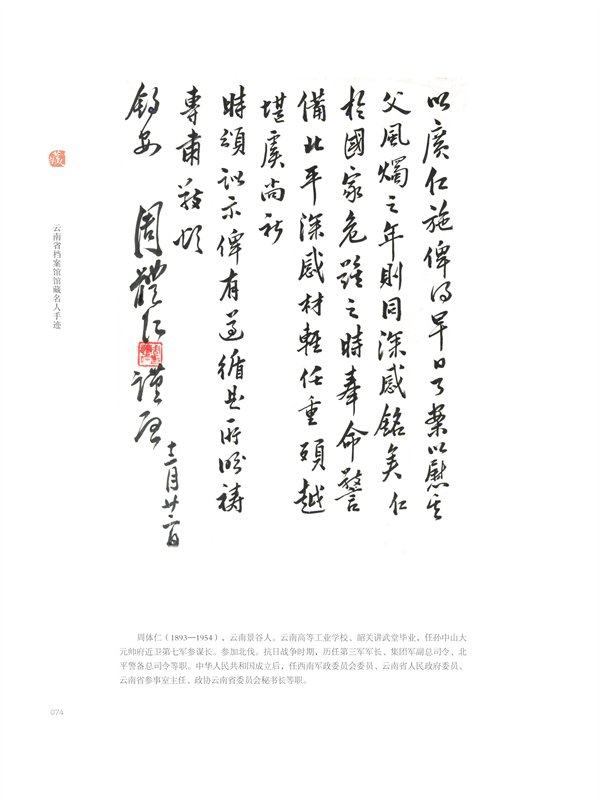 以广仁施俾得早日了案以慰其
父风烛之年则同深感铭矣仁
於國家危难之時奉命警
備北平深感材輕任重頭越
堪虞尚祈
時頒訓示俾有遵循是所盼禱
專肅敬頌
鈞安 周體仁謹啓
十二月廿二日
云南省档案馆馆藏名人手迹
周体仁（1893—1954），云南景谷人。云南高等工业学校、韶关讲武堂毕业，任孙中山大
元帅府近卫第七军参谋长。参加北伐。抗日战争时期，历任第三军军长、集团军副总司令、北
平警备总司令等职。中华人民共和国成立后，任西南军政委员会委员、云南省人民政府委员、
云南省参事室主任、政协云南省委员会秘书长等职。
074